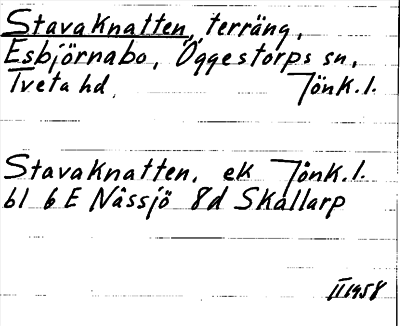 Stavaknatten, terräng,
Esbjörnabo, Öggestorps sn,
Tveta hd. Jönk.l.
Stavaknatten. ek Jönk.l.
bl 6E Nässjö 8d Skallarp
II 1958